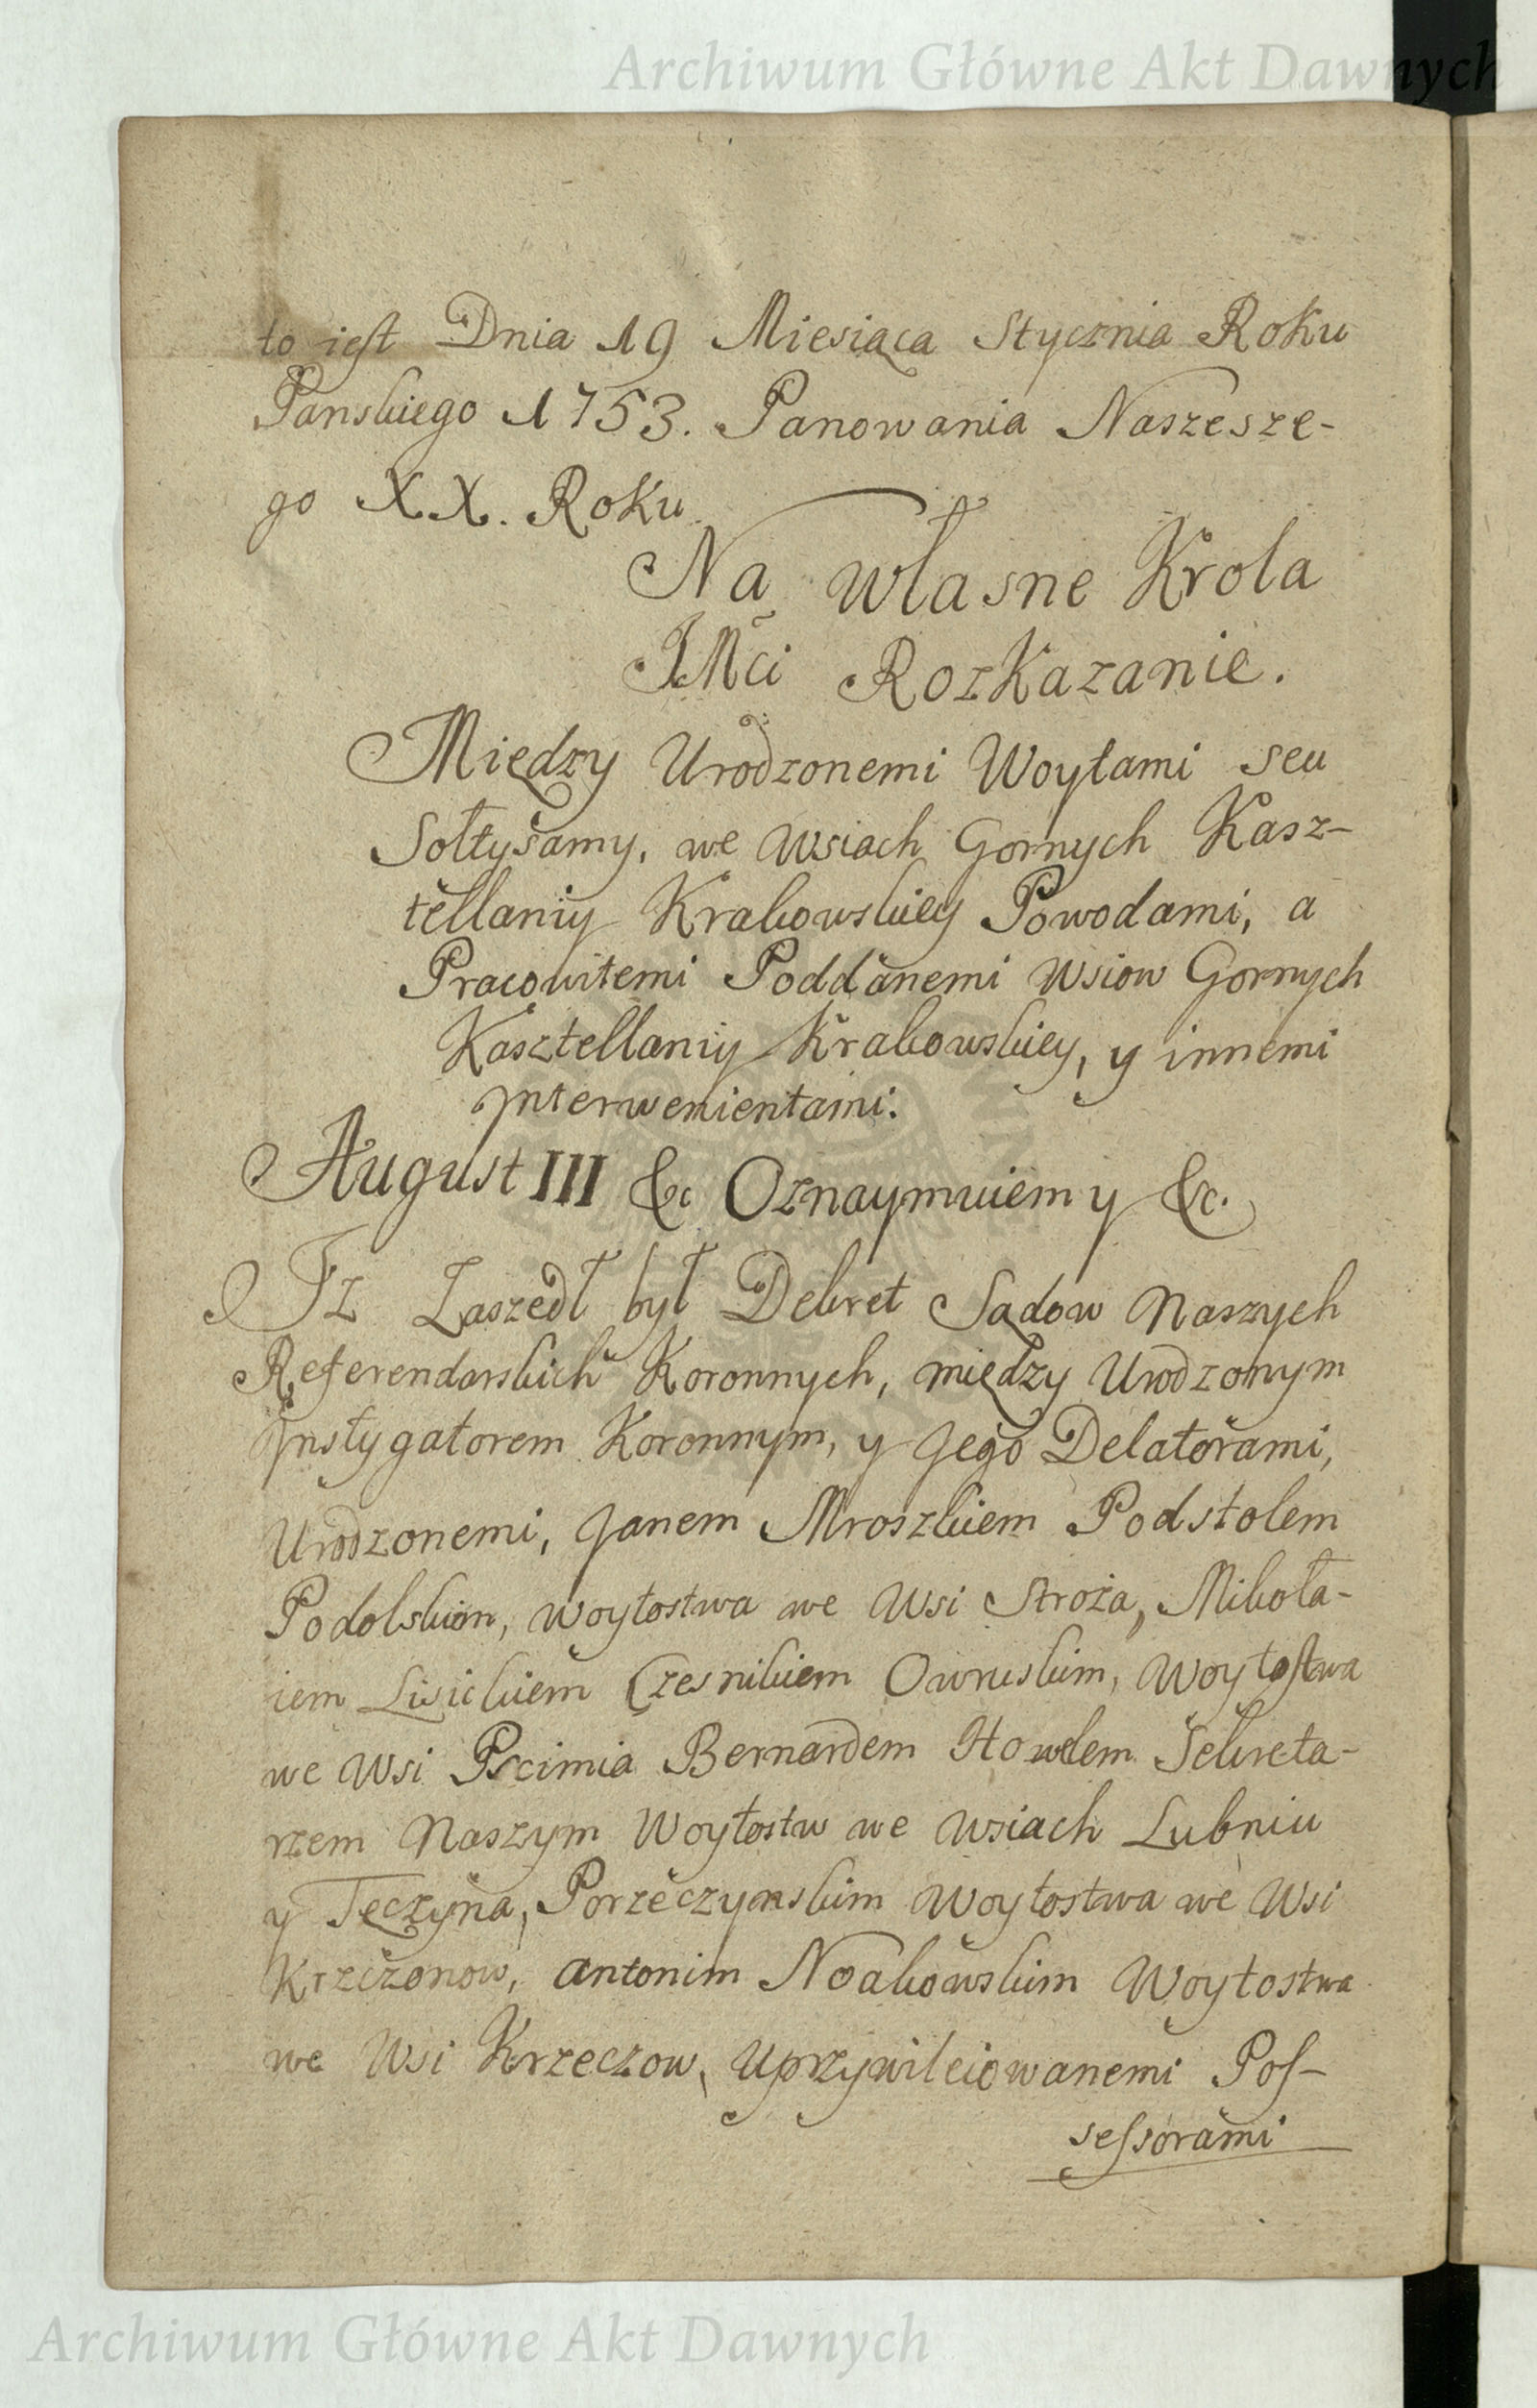 Archiwum Główne Akt Dawnych
to iest Dnia 19 Miesiąca Stycznia Roku
Panskiego 1753. Panowania Naszesze-
go XX. Roku.
Na własne Krola
JMci RozKazanie.
Między Urodzonemi Woytami seu
Sołtysamy, we Wsiach Gornych Kasz-
tellaniy Krakowskiey Powodami, a
Pracowitemi Poddanemi Wsiow Gornych
Kasztellaniy Krakowskiey, y innemi
Interwenientami.
August III &c Oznaymuiemy &c.
Iz Zaszedł był Dekret Sądow Naszych
Referendarskich Koronnych, między Urodzonym
Instygatorem Koronnym, y Jego Delatorami,
Urodzonemi, Janem Mroszkiem Podstolem
Podolskim, Woytostwa we Wsi Stroża, Mikoła-
iem Lisickiem Czesnikiem Owruskim, Woytostwa
we Wsi Pscimia Bernardem Howlem Sekreta-
rzem Naszym Woytostw we Wsiach Lubniu
y Tęczyna, Porzeczynskim Woytostwa we Wsi
Krzczonow, Antonim Noakowskim Woytostwa
we Wsi Krzeczow, Uprzywileiowanemi Pos-
sessorami
Archiwum Główne Akt Dawnych